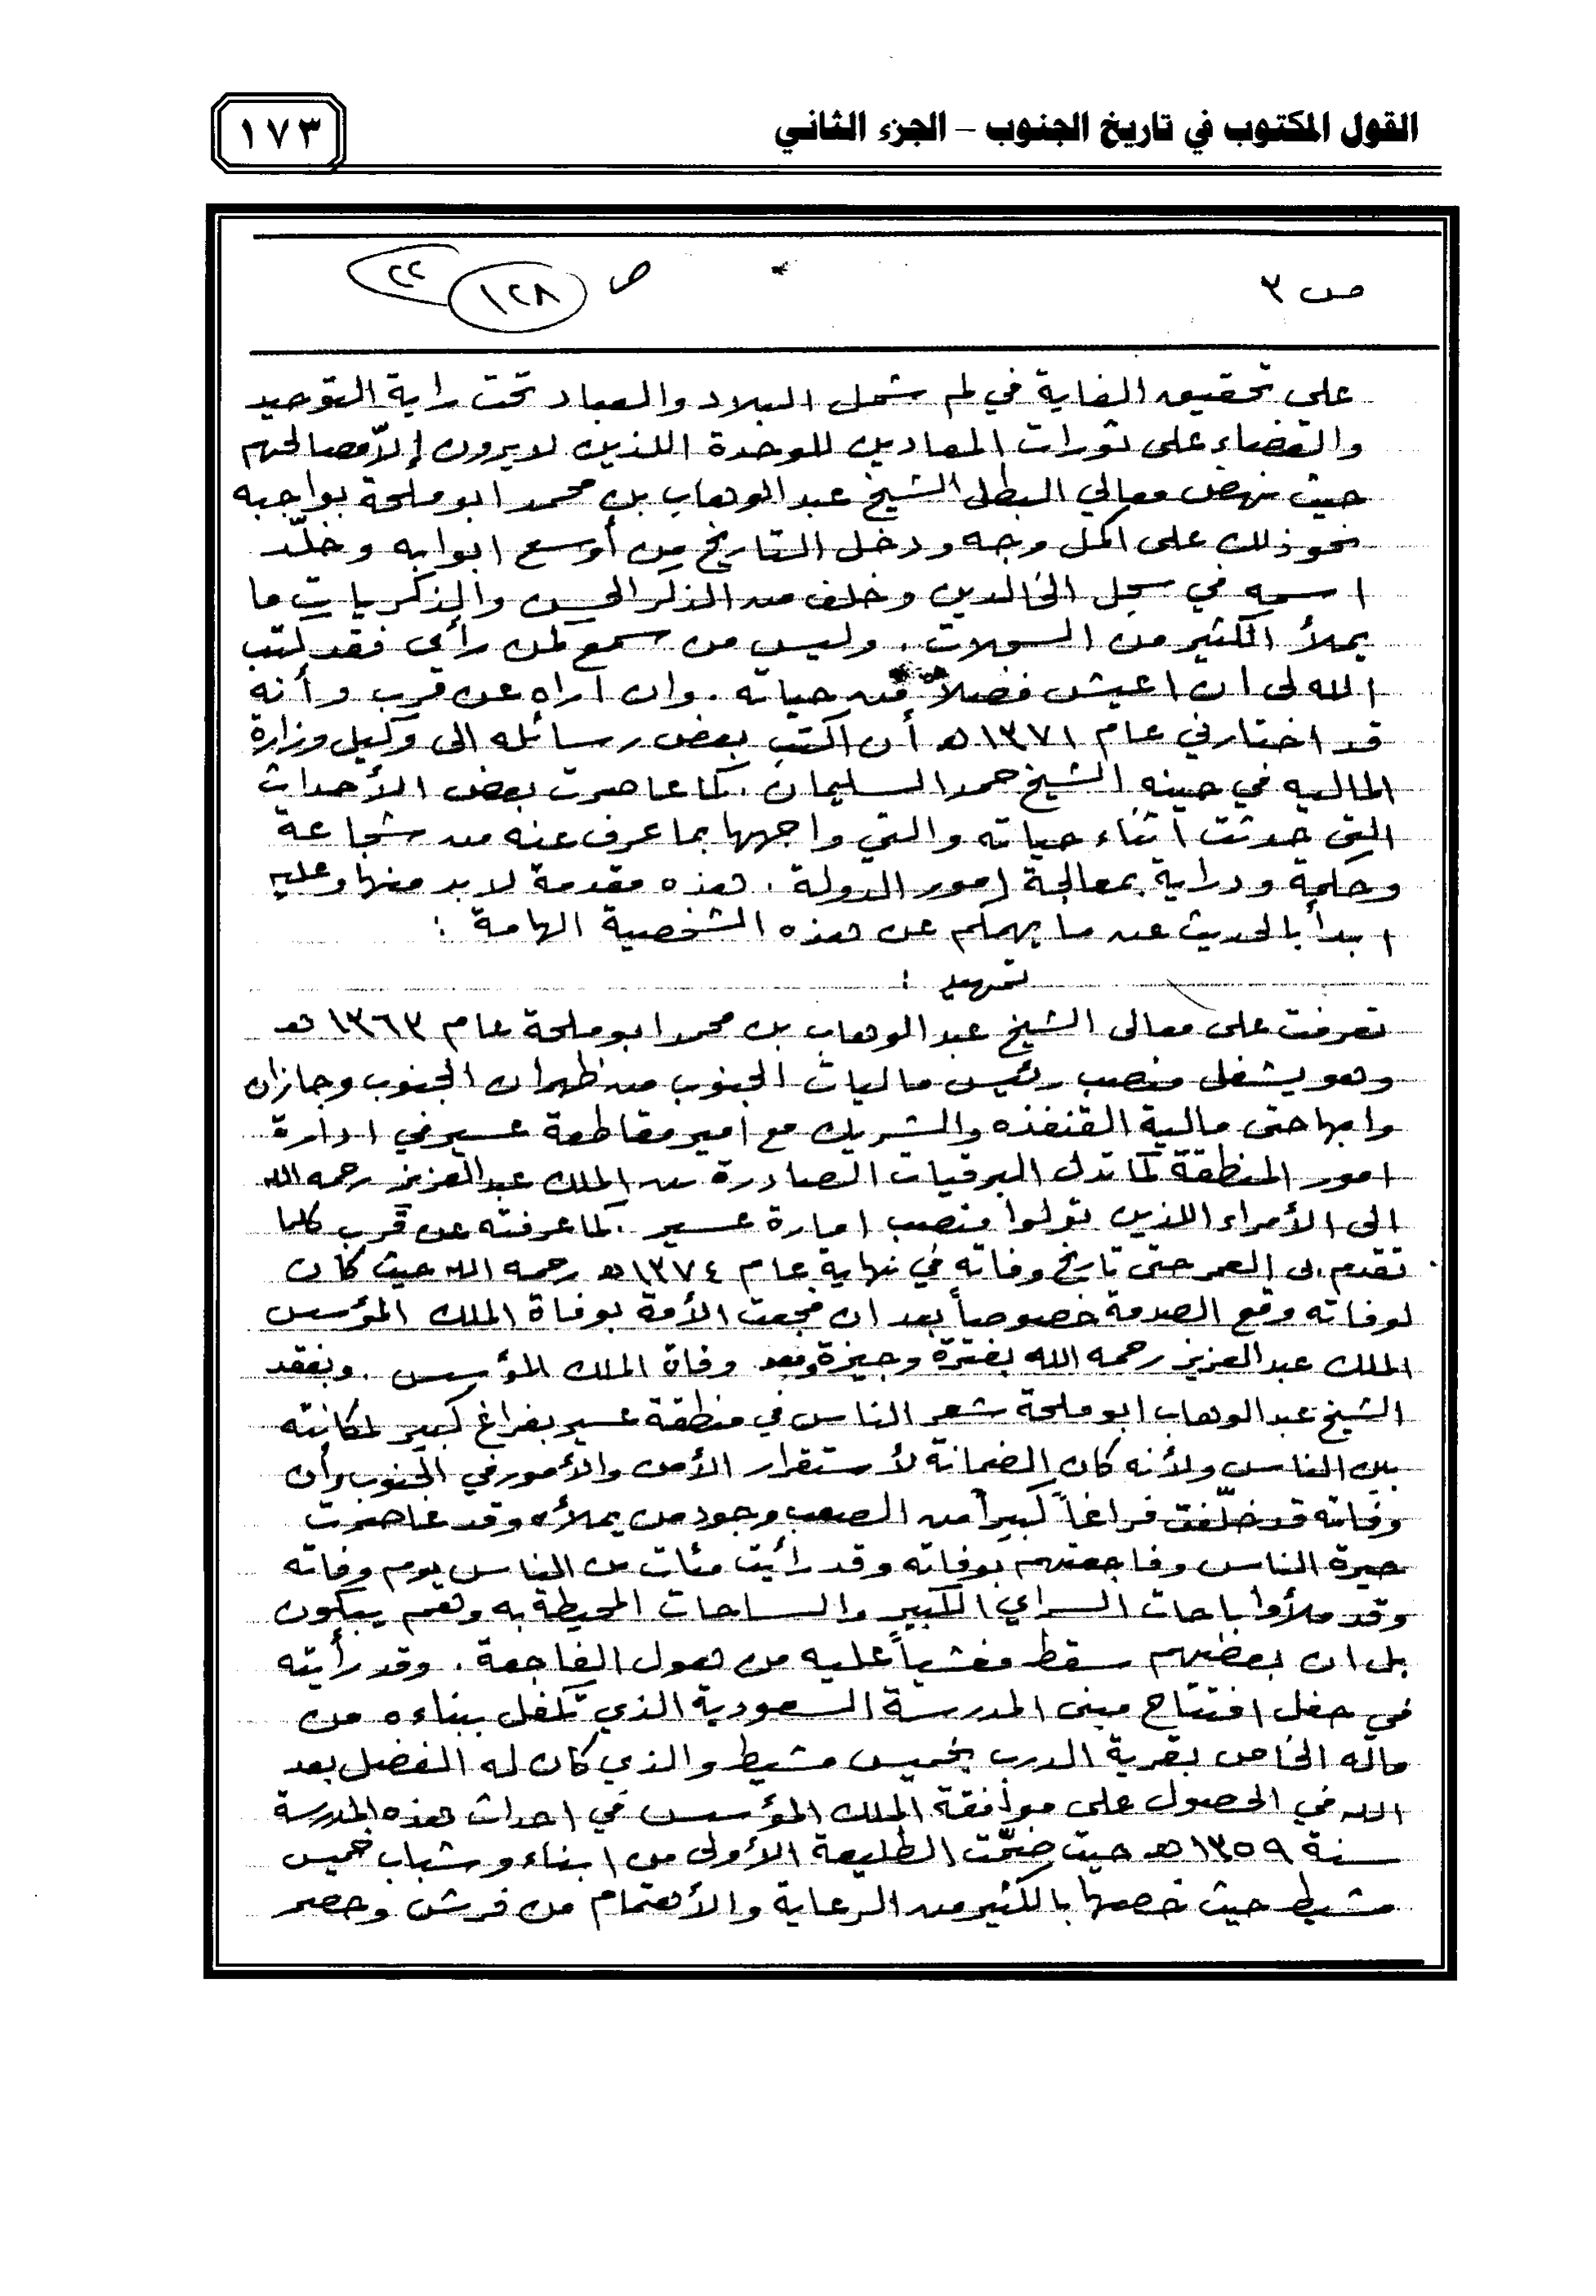 القول المكتوب في تاريخ الجنوب – الجزء الثاني
١٧٣
ص ٣
ص ١٢٨ ٢٢
على تحقيق الغاية في لم شمل البلاد والعباد تحت راية التوحيد
والقضاء على ثورات المعادين للوحدة اللذين لا يرون إلاّ مصالحهم
حيث نهض معالي البطل الشيخ عبد الوهاب بن محمد ابو ملحة بواجبه
نحو ذلك على اكمل وجه ودخل التاريخ من أوسع ابوابه وخلّد
اسمه في سجل الخالدين وخلف من الذكر الحسن والذكريات ما
يملأ الكثير من السجلات. وليس من سمع كمن رأى فقد كتب
الله لى ان اعيش فصلاً من حياته. وان اراه عن قرب وأنه
قد اختارني عام ١٣٧١هـ أن اكتب بعض رسائله الى وكيل وزارة
الماليه في حينه الشيخ حمد السليمان. كما عاصرت بعض الأحداث
التي حدثت اثناء حياته والتي واجهها بما عرف عنه من شجاعة
وحكمة ودراية بمعالجة امور الدولة. هذه مقدمة لابد منها وعليه
ابدأ بالحديث عن ما يهمكم عن هذه الشخصية الهامة :
تمهيد :
تعرفت على معالى الشيخ عبد الوهاب بن محمد ابو ملحة عام ١٣٦٣ هـ
وهو يشغل منصب رئيس ماليات الجنوب من ظهران الجنوب وجازان
وابها حتى مالية القنفذه والشريك مع امير مقاطعة عسير في ادارة
امور المنطقة كما تدل البرقيات الصادرة من الملك عبد العزيز رحمه الله
الى الأمراء اللذين تولوا منصب امارة عسير. كما عرفته عن قرب كلما
تقدم بى العمر حتى تاريخ وفاته في نهاية عام ١٣٧٤هـ رحمه الله حيث كان
لوفاته وقع الصدمة خصوصاً بعد ان فجعت الأمة بوفاة الملك المؤسس
الملك عبد العزيز رحمه الله بفترة وجيزة وبعد وفاة الملك المؤسس. وبفقد
الشيخ عبد الوهاب ابو ملحة شعر الناس في منطقة عسير بفراغ كبير لمكانته
بين الناس ولأنه كان الضمانة لأستقرار الأمن والأمور في الجنوب وأن
وفاته قد خلّفت فراغاً كبيراً من الصعب وجود من يملأه وقد عاصرت
حيرة الناس وفاجعتهم بوفاته وقد رأيت مئات من الناس يوم وفاته
وقد ملأوا باحات السراي الكبير والساحات المحيطة به وهم يبكون
بل ان بعضهم سقط مغشياً عليه من هول الفاجعة. وقد رأيته
في حفل افتتاح مبنى المدرسة السعودية الذي تكفل ببناءه من
ماله الخاص بقرية الدرب بخميس مشيط والذي كان له الفضل بعد
الله في الحصول على موافقة الملك المؤسس في احداث هذه المدرسة
سنة ١٣٥٩هـ حيث ضمّت الطليعة الأولى من ابناء وشباب خميس
مشيط حيث خصها بالكثير من الرعاية والأهتمام من فرش وحصر